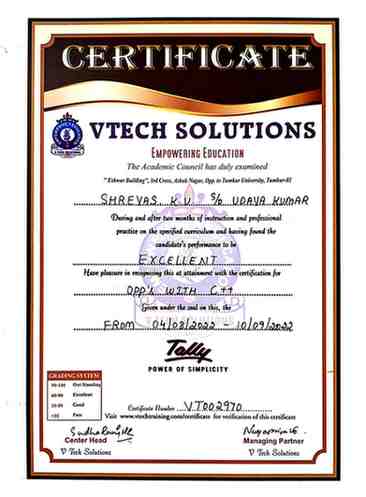 CERTIFICATE
VTECH SOLUTIONS
EMPOWERING EDUCATION
The Academic Council has duly examined
3rd Cross, Ashok Nagar, Opp. to Tumkur University, Tumkur-02
SHREYAS. K.V. S/o UDAYA KUMAR
During and after two months of instruction and professional
practice on the specified curriculum and having found the
candidate's performance to be
EXCELLENT
Have pleasure in recognizing this at attainment with the certification for
OPP's WITH C++
Given under the seal on this, the
FROM 04/08/2022 - 10/09/2022
Tally
POWER OF SIMPLICITY
GRADING SYSTEM
Out Standing
Excellent
Good
Pass
Certificate Number VT002970
Visit www.vtechtraining.com/certificate for verification of this certificate
Center Head
V Tech Solutions
Managing Partner
V Tech Solutions